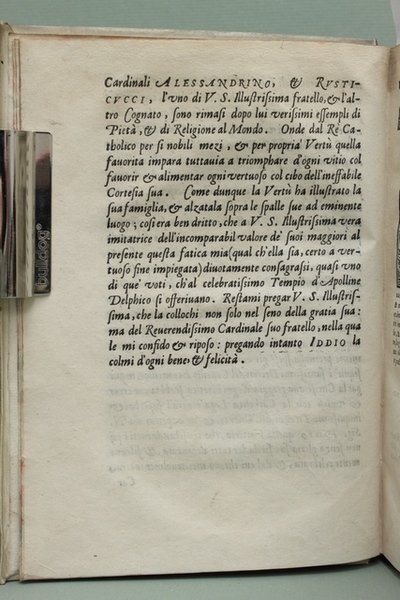 Cardinali ALESSANDRINO, & RVSTI-
CVCCI, l'vno di V. S. Illustrissima fratello, & l'al-
tro Cognato, sono rimasi dopo lui verissimi essempli di
Pietà, & di Religione al Mondo. Onde dal Rè Ca-
tholico per sì nobili mezi, & per propria Vertù quella
fauorita impara tuttauia a triomphare d'ogni vitio col
fauorir & alimentar ogni vertuoso col cibo dell'ineffabile
Cortesia sua. Come dunque la Vertù ha illustrato la
sua famiglia, & alzatala sopra le spalle sue ad eminente
luogo; così era ben dritto, che a V. S. Illustrissima vera
imitatrice dell'incomparabil valore de' suoi maggiori al
presente questa fatica mia (qual ch'ella sia, certo a ver-
tuoso fine impiegata) diuotamente consagrassi, quasi vno
di que' voti, ch'al celebratissimo Tempio d'Apolline
Delphico si offeriuano. Restami pregar V. S. Illustris-
sima, che la collochi non solo nel seno della gratia sua:
ma del Reuerendissimo Cardinale suo fratello, nella qua
le mi confido & riposo: pregando intanto IDDIO la
colmi d'ogni bene, & felicità.
bulldog